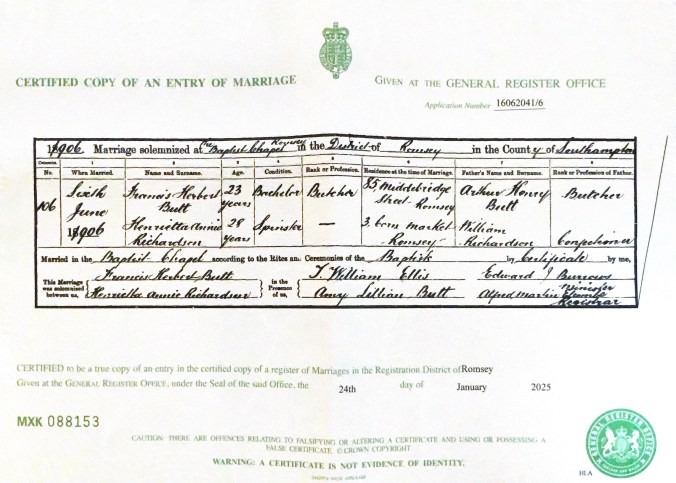 CERTIFIED COPY OF AN ENTRY OF MARRIAGE
GIVEN AT THE GENERAL REGISTER OFFICE
Application Number 16062041/6
1906. Marriage solemnized at the Baptist Chapel Romsey in the District of Romsey in the County of Southampton
Columns. 1 2 3 4 5 6 7 8
No. When Married. Name and Surname. Age. Condition. Rank or Profession. Residence at the time of Marriage. Father's Name and Surname. Rank or Profession of Father.
106 Sixth June 1906 Francis Herbert Butt 23 years Bachelor Butcher 85 Middlebridge Street Romsey Arthur Henry Butt Butcher
Henrietta Annie Richardson 28 years Spinster — 3. Corn Market Romsey William Richardson Confectioner
Married in the Baptist Chapel according to the Rites and Ceremonies of the Baptists by Certificate by me,
This Marriage was solemnized between us, Francis Herbert Butt Henrietta Annie Richardson in the Presence of us, T. William Ellis Amy Lillian Butt Edward J Burrows Minister Alfred Martin Registrar
CERTIFIED to be a true copy of an entry in the certified copy of a register of Marriages in the Registration District of Romsey
Given at the GENERAL REGISTER OFFICE, under the Seal of the said Office, the 24th day of January 2025
MXK 088153
CAUTION: THERE ARE OFFENCES RELATING TO FALSIFYING OR ALTERING A CERTIFICATE AND USING OR POSSESSING A
FALSE CERTIFICATE © CROWN COPYRIGHT
WARNING: A CERTIFICATE IS NOT EVIDENCE OF IDENTITY.
GENERAL REGISTER OFFICE
HLA